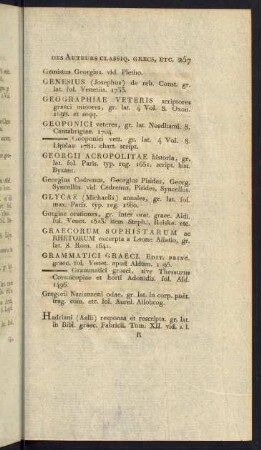 DES AUTEURS CLASSIQ. GRECS, ETC. 267
Gemistus Georgius. vid. Pletho.
GENESIUS (Josephus) de reb. Const. gr.
lat. fol. Venetiis. 1733.
GEOGRAPHIAE VETERIS scriptores
graeci minores, gr. lat. 4 Vol. 8. Oxon.
1698. et
GEOPONICI veteres, gr. lat. Needhami. 8.
Cantabrigiae. 1704.
Geoponici vett. gr. lat. 4 Vol. 8.
Lipsiae 1781. chart. script.
GEORGII ACROPOLITAE historia, gr.
lat. fol. Paris. typ. reg. 1651. script. hist.
Byzant.
Georgius Cedrenus, Georgius Pisides, Georg.
Syncellus vid Cedrenus, Pisides, Syncellus.
GLYCAE (Michaelis) annales, gr. lat. fol.
max. Paris. typ. reg. 1660.
Gorgiae orationes, gr. inter orat. graec. Aldi.
fol. Venet. 1513. item Steph. Reiskii. etc.
GRAECORUM SOPHISTARUM ac
RHETORUM excerpta a Leone Allatio, gr.
lat. 8. Rom. 1641.
GRAMMATICI GRAECI. EDIT. PRINC.
graec. fol. Venet. apud Aldum. 1496.
Grammatici graeci, sive Thesaurus
Cornucopiae et horti Adonidis fol. Ald.
1496.
Gregorii Nazianzeni odae, gr. lat. in corp. poët.
trag. com. etc. fol. Aurel. Allobrog.
Hadriani (Aelii) responsa et rescripta. gr. lat.
in Bibl. graec. Fabricii. Tom. XII. vid. a f.
R